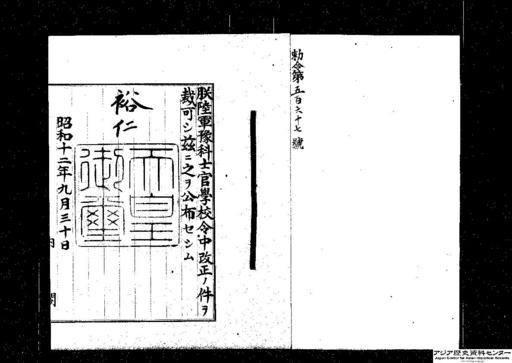 勅令第五百六十七號
朕陸軍豫科士官學校令中改正ノ件ヲ
裁可シ茲ニ之ヲ公布セシム
裕仁
天皇御璽
昭和十二年九月三十日
内閣
アジア歴史資料センター
Japan Center for Asian Historical Records